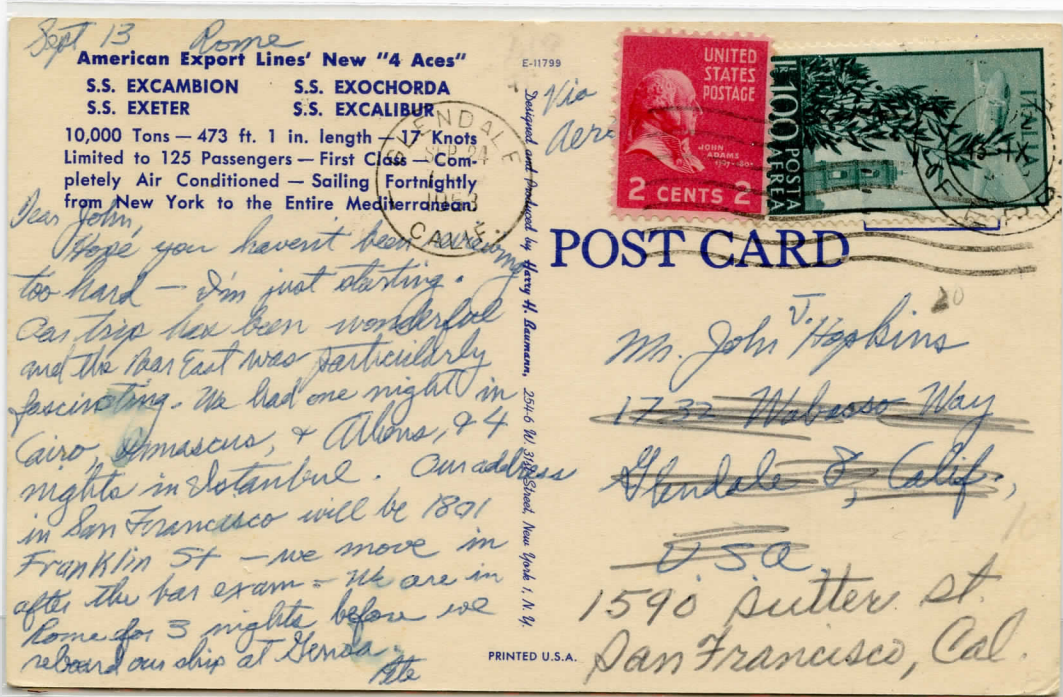 Sept 13 Rome
American Export Lines' New "4 Aces"
S.S. EXCAMBION S.S. EXOCHORDA
S.S. EXETER S.S. EXCALIBUR
10,000 Tons — 473 ft. 1 in. length — 17 Knots
Limited to 125 Passengers — First Class — Com-
pletely Air Conditioned — Sailing Fortnightly
from New York to the Entire Mediterranean.
Dear John,
Hope you havent been working
too hard — I'm just starting.
Our trip has been wonderful
and the Near East was particularly
fascinating. We had one night in
Cairo, Damascus, & Athens, & 4
nights in Istanbul. Our address
in San Francisco will be 1801
Franklin St — we move in
after the bar exam - We are in
Rome for 3 nights before we
reboard our ship at Genoa.
Pete
E-11799
Designed and Produced by Harry H. Baumann, 254-6 W. 31st Street, New York 1, N. Y.
PRINTED U.S.A.
Via
Aereo
GLENDALE
SEP 24
1953
CALIF.
UNITED
STATES
POSTAGE
JOHN
ADAMS
2 CENTS 2
ITALIA
L. 100 POSTA
AEREA
POST CARD
20
Mr. John J. Hopkins
1732 Wabasso Way
Glendale 8, Calif.,
USA
1590 Sutter St.
San Francisco, Cal.